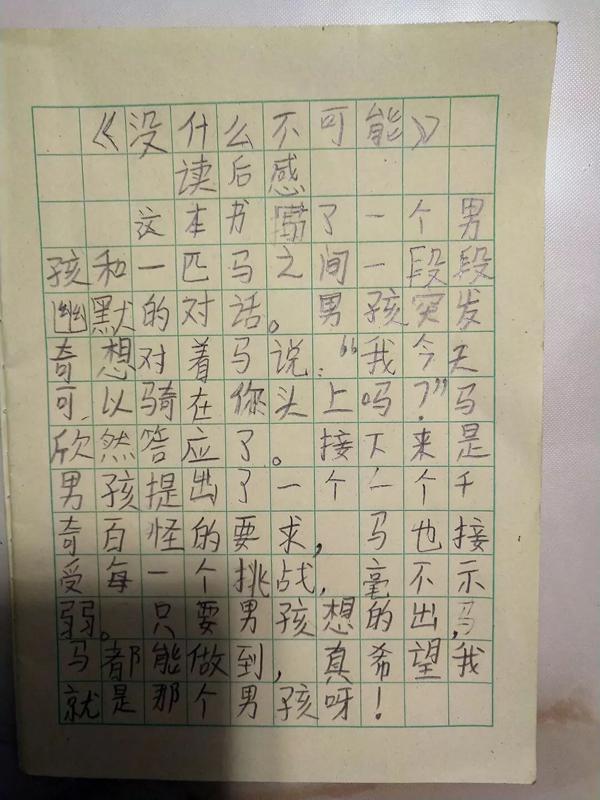 《没什么不可能》
读后感
这本书写了一个男
孩和一匹马之间一段段
幽默的对话。男孩突发
奇想对着马说：“我今天
可以骑在你头上吗？”马
欣然答应了。接下来是
男孩提出了一个一个千
奇百怪的要求，马也接
受每一个挑战，毫不示
弱。只要男孩想的出，马
马都能做到，真希望我
就是那个男孩呀！